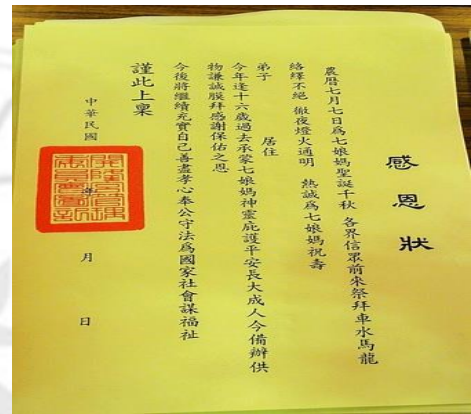 感恩狀
農曆七月七日為七娘媽聖誕千秋 各界信眾前來祭拜車水馬龍
絡繹不絕 徹夜燈火通明 熱誠為七娘媽祝壽
弟子 居住
今年逢十六歲過去承蒙七娘媽神靈庇護平安長大成人今備辦供
物謙誠膜拜感謝保佑之恩
今後將繼續充實自己善盡孝心奉公守法為國家社會謀福祉
謹此上稟
中華民國 年 月 日